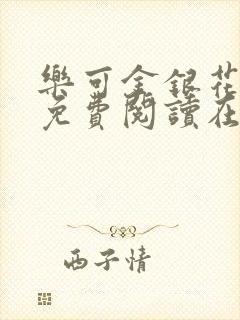 樂可金銀花
免費閱讀在
西子情